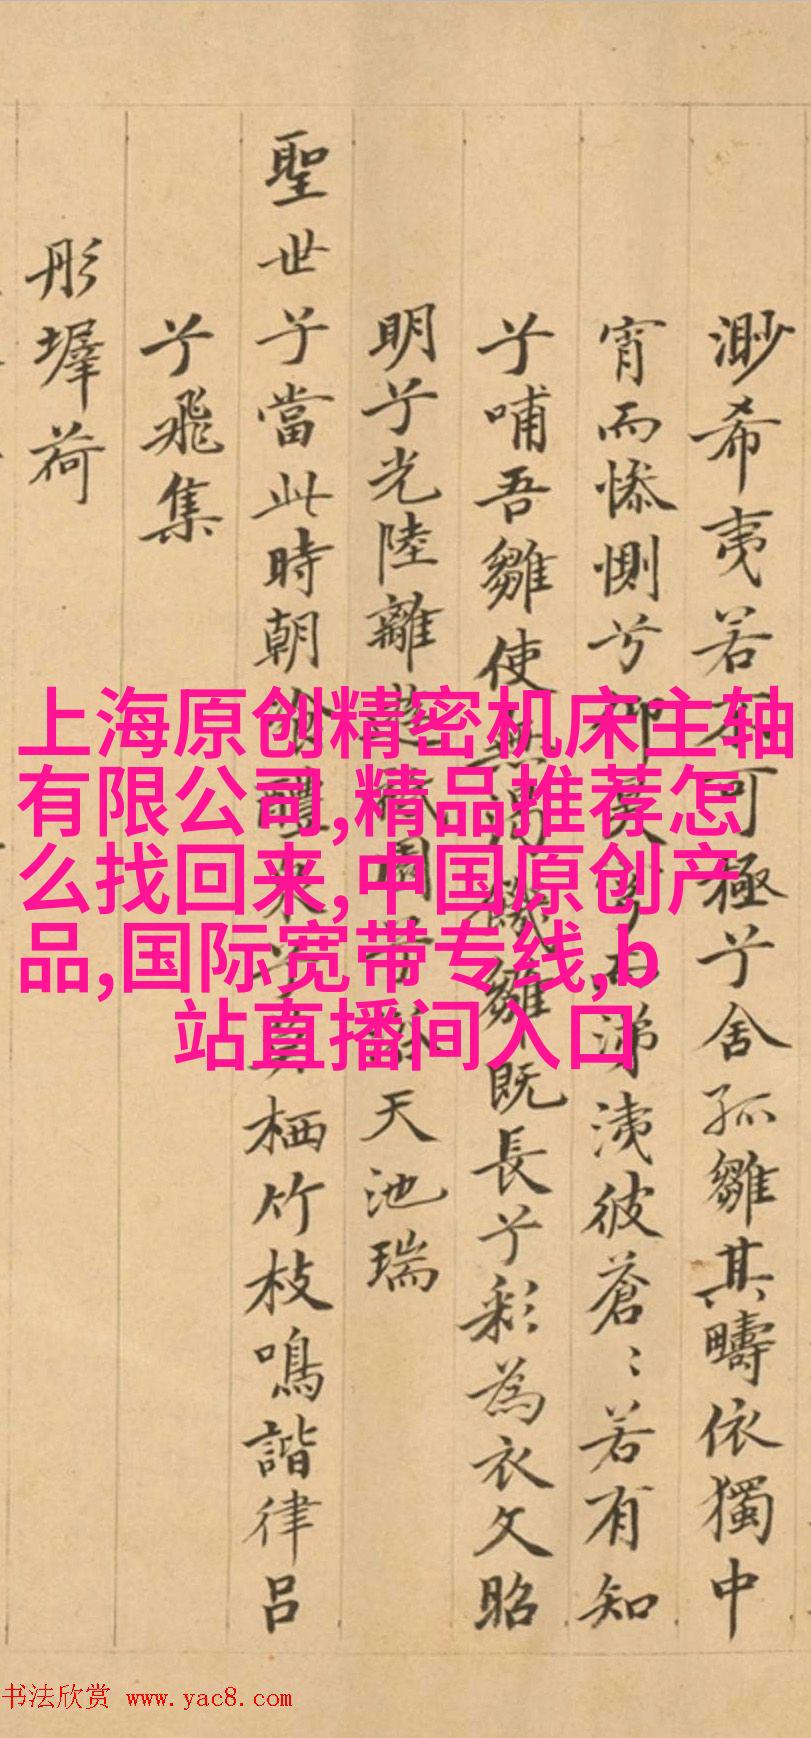 渺希夷若不可極兮舍孤雛其疇依獨中
宵而慘惻兮仰涕洟彼蒼〻若有知
兮哺吾雛使雛既長兮彩為衣文昭
明兮光陸離天池瑞
聖世兮當此時朝栖竹枝鳴諧律呂
兮飛集
彤墀荷
上海原创精密机床主轴
有限公司,精品推荐怎
么找回来,中国原创产
品,国际宽带专线,b
站直播间入口
书法欣赏 www.yac8.com